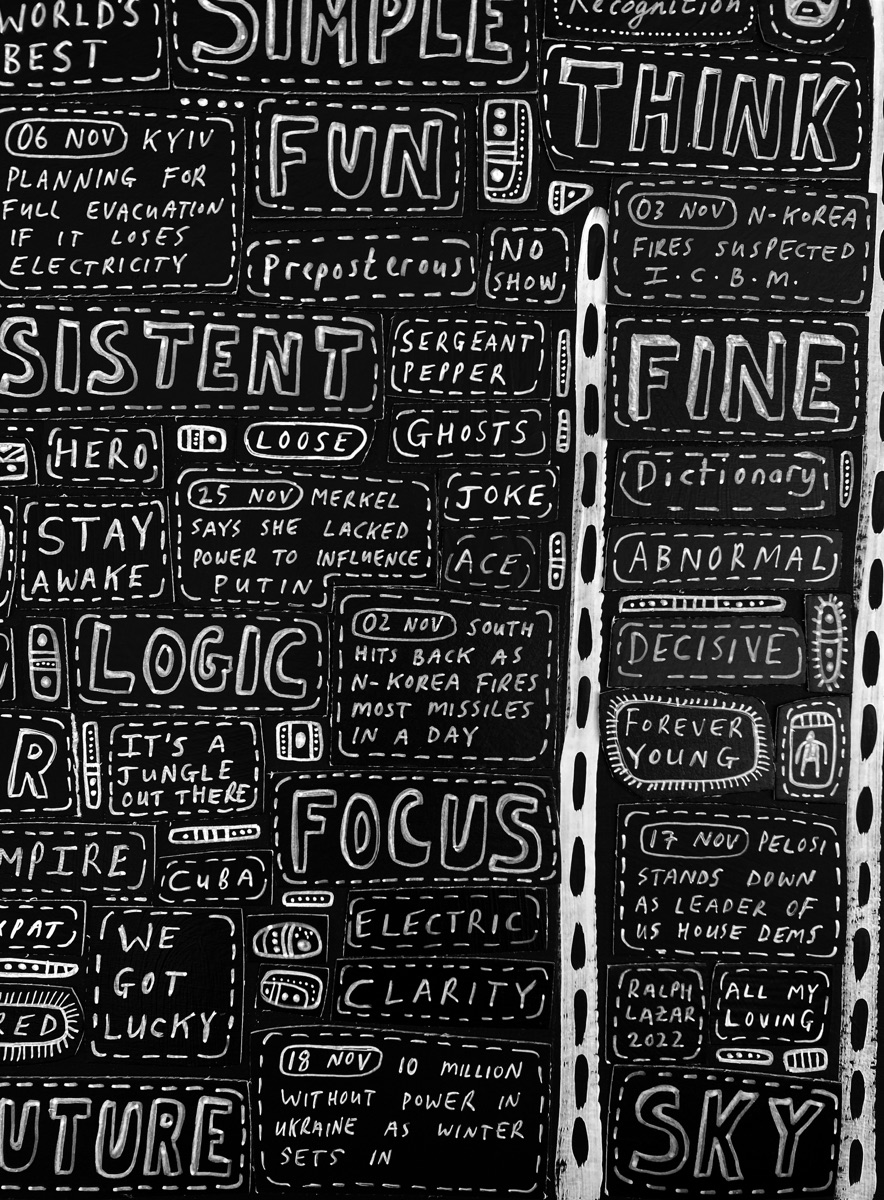 WORLD'S
BEST
SIMPLE
Recognition
THINK
06 NOV KYIV
PLANNING FOR
FULL EVACUATION
IF IT LOSES
ELECTRICITY
FUN
Preposterous
NO
SHOW
03 NOV N-KOREA
FIRES SUSPECTED
I.C.B.M.
SISTENT
SERGEANT
PEPPER
FINE
HERO
LOOSE
GHOSTS
Dictionary
STAY
AWAKE
25 NOV MERKEL
SAYS SHE LACKED
POWER TO INFLUENCE
PUTIN
JOKE
ACE
ABNORMAL
LOGIC
02 NOV SOUTH
HITS BACK AS
N-KOREA FIRES
MOST MISSILES
IN A DAY
DECISIVE
FOREVER
YOUNG
R
IT'S A
JUNGLE
OUT THERE
FOCUS
17 NOV PELOSI
STANDS DOWN
AS LEADER OF
US HOUSE DEMS
MPIRE
CUBA
XPAT
WE
GOT
LUCKY
ELECTRIC
CLARITY
RED
RALPH
LAZAR
2022
ALL MY
LOVING
UTURE
18 NOV 10 MILLION
WITHOUT POWER IN
UKRAINE AS WINTER
SETS IN
SKY